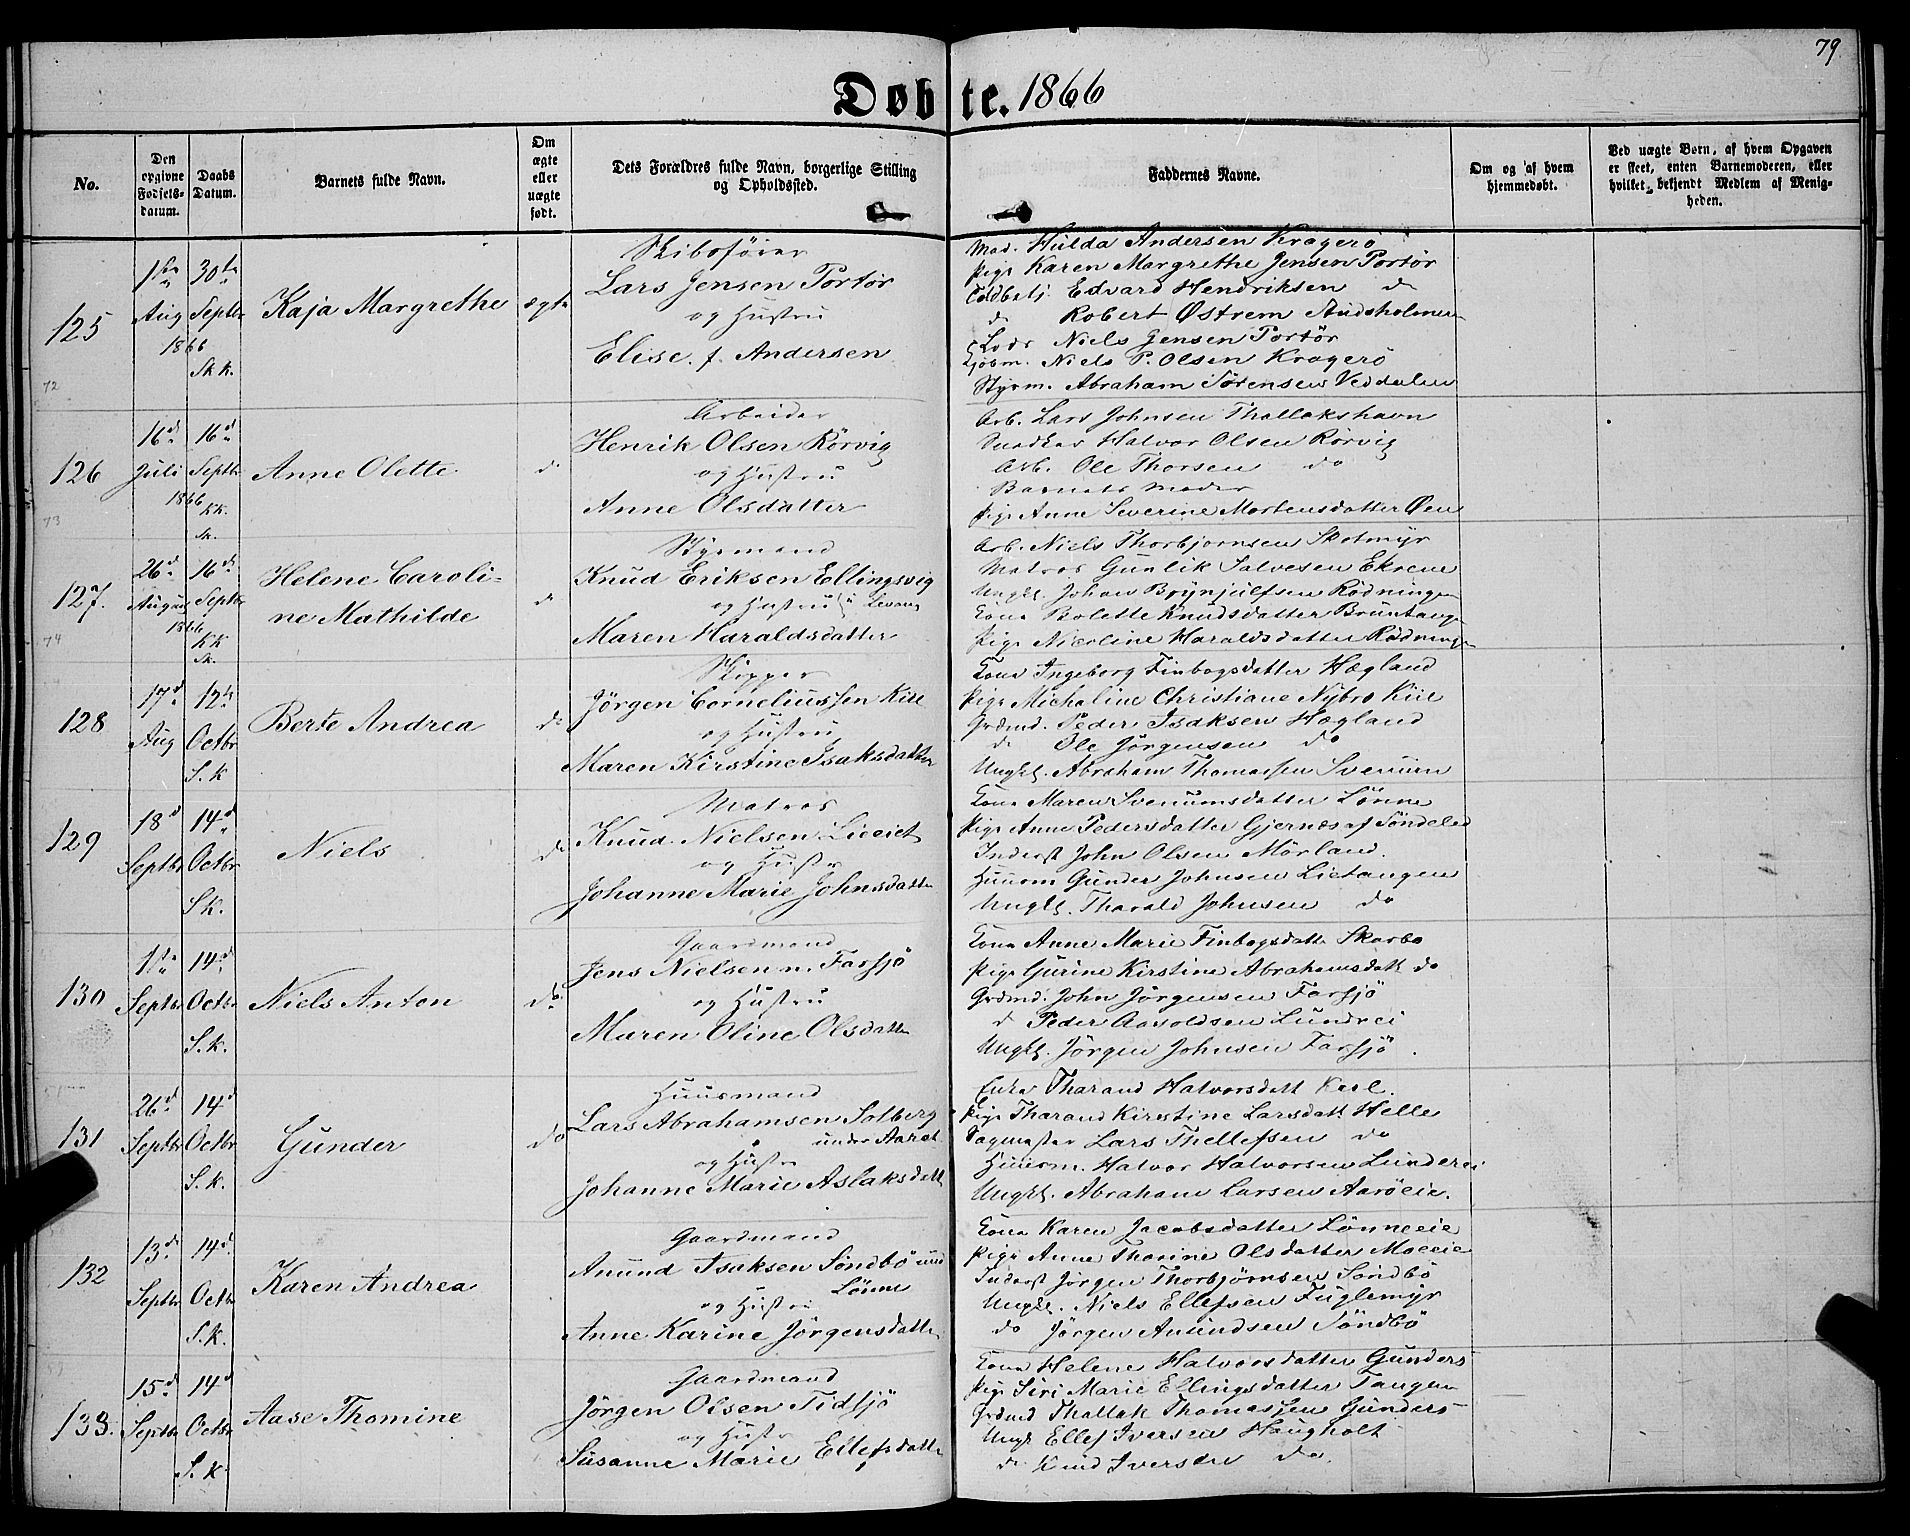 79.
Døbte. 1866
No.
Den opgivne Fødsels-datum.
Daabs Datum.
Barnets fulde Navn.
Om ægte eller uægte født.
Dets Forældres fulde Navn, borgerlige Stilling og Opholdssted.
Faddernes Navne.
Om og af hvem hjemmedøbt.
Ved uægte Børn, af hvem Opgaven er skeet, enten Barnemoderen, eller hvilket bekjendt Medlem af Menigheden.
125
1ste Aug 1866
30te Septbr Sk k.
Kaja Margrethe
ægte
Skibsfører
Lars Jensen Portør
og Hustru
Elise f. Andersen
Mad. Hulda Andersen Kragerö
Pige Karen Margrethe Jensen Portör
Toldbetj. Edvard Hendriksen do
do Robert Østrem
Lods Niels Jensen Portør
Niels P. Olsen Kragerö
Styrm. Abraham Sörensen Veddalen
72
126
16d Juli 1866
16d Septbr KK.
Sk.
Anne Olette
do
Arbeider
Henrik Olsen Rörvig
og Hustru
Anne Olsdatter
Arb. Lars Johnsen Thallakshavn
Snedker Halvor Olsen Rörvig
Arb. Ole Thorsen do
Barnets Moder
Pige Anne Severine Mortensdatter Øen
73
127.
26d August 1866
16d Septbr KK
Sk.
Helene Caroli-
ne Mathilde
do
Styrmand
Knud Eriksen Ellingsvig
og Hustru u. Levang
Maren Haraldsdatter
Arb. Niels Thorbjørnsen Skotmyr
Matros Gunlik Salvesen Ekrene
Ungkl. Johan Brynjulfsen Rödningen
Kone Bolette Knudsdatter Bruntange
Pige Nicoline Haraldsdatter Rödningen
74
128
17d Aug
12te Octbr S. k
Berte Andrea
do
Skipper
Jörgen Corneliussen Kiil
og Hustru
Maren Kirstine Isaksdatter
Kone Ingeborg Finbogsdatter Hægland
Pige Michaline Christiane Nybro Kiil
Grdmd. Peder Isaksen Hægland
do Ole Jörgensen do
Ungkl. Abraham Thomassen
129
18d Septbr
14d Octbr Sk.
Niels
do
Matros
Knud Nielsen Lieeiet
og Hustr
Johanne Marie Johnsdatter
Kone Maren Svenumsdatter Lönne
Pige Anne Pedersdatter Gjernæs af Söndeled
Inderst John Olsen Mörland.
Huusm Gunder Johnsen Lietangen
Ungkl. Tharald Johnsen do
130
1ste Septbr
14d Octbr S. k.
Niels Anton
do.
Gaardmand
Jens Nielsen n. Farsjö
og Hustru
Maren Oline Olsdatter
Kone Anne Marie Finbogsdatt Skarbo
Pige Gurine Kirstine Abrahamsdatt do
Grdmd. John Jörgensen Farsjö
d Peder Aasoldsen Lundrei
Ungkl. Jörgen Johnsen Farsjö.
131
26d Septbr
14d Octbr S. k.
Gunder
do
Huusmand
Lars Abrahamsen Solberg
under Aarøe
og Hustr
Johanne Marie Aslaksdatt
Enke Tharand Halvorsdatt Keel.
Pige Tharand Kirstine Larsdatt Helle
Sagmester Lars Thellefsen do
Huusm. Halvor Halvorsen Lunderei
Ungkl. Abraham Larsen Aaröeie.
132
13d Septbr
14d Octbr S. k.
Karen Andrea
Gaardmand
Anund Isaksen Söndbö und
Lönne
og Hustru
Anne Karine Jörgensdatter
Kone Karen Jacobsdatter Lönneeie
Pige Anne Thorine Olsdatter Moeeie
Inderst Jörgen Thorbjørnsen Söndbö
Ungkl. Niels Ellefsen Fuglemyr
do Jörgen Anundsen Söndbö
133.
15d Septbr
14d Octbr S. k
Aase Thomine
Gaardmand
Jörgen Olsen Tidsjö
og Hustr
Susanne Marie Ellefsdatter
Kone Helene Halvorsdatter Gunders
Pige Siri Marie Ellingsdatter Tangen
Grdmd Thallak Thomassen Gunders
Ungk Ellef Iversen Haugholt
do Knud Iversen do.